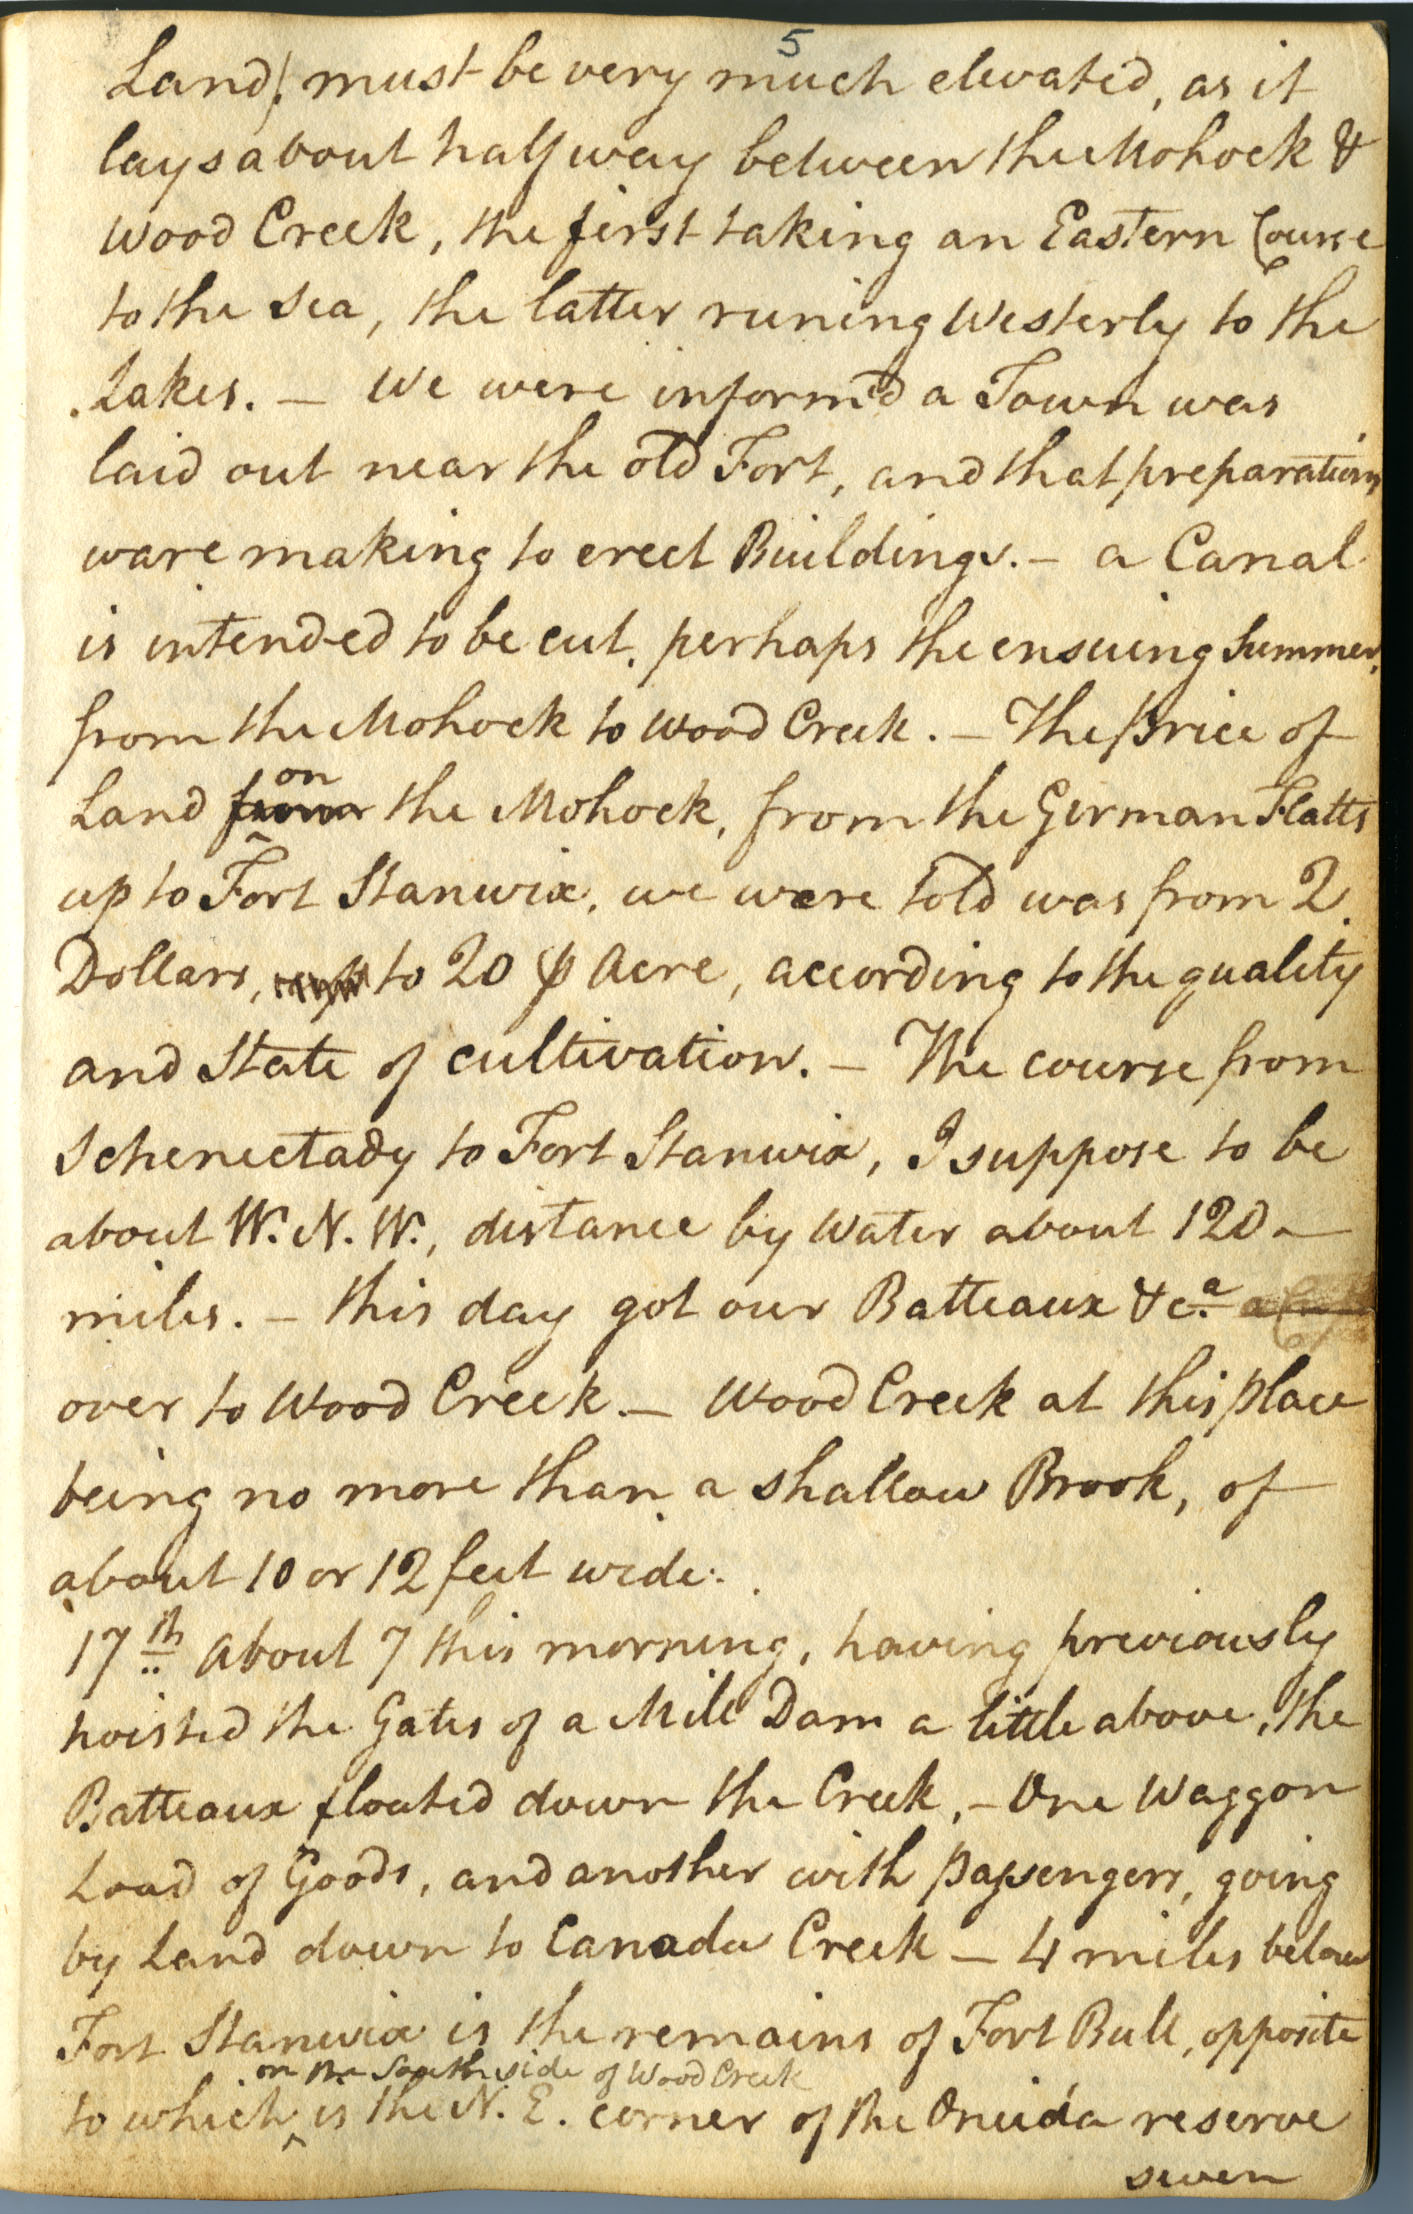 5
Land, must be very much elevated, as it
lays about half way between the Mohock &
Wood Creek, the first taking an Eastern Course
to the Sea, the latter runing Westerly to the
Lakes. — We were inform'd a Town was
laid out near the old Fort, and that preparations
ware making to erect Buildings. — a Canal
is intended to be cut, perhaps the ensuing Summer,
from the Mohock to Wood Creek. — The Price of
on
Land from the Mohock, from the German Flatts
up to Fort Stanwix, we were told was from 2
Dollars, to 20 ⅌ Acre, according to the quality
and State of cultivation. — The course from
Schenectady to Fort Stanwix, I suppose to be
about W. N. W., distance by Water about 120 —
miles. — this day got our Batteaux &c.a
over to Wood Creek — Wood Creek at this place
being no more than a shallow Brook, of
about 10 or 12 feet wide.
17th About 7 this morning, having previously
hoisted the Gates of a Mill Dam a little above, the
Batteaux floated down the Creek, — One Waggon
Load of Goods, and another with passengers, going
by Land down to Canada Creek — 4 miles below
Fort Stanwix is the remains of Fort Bull, opposite
on the South side of Wood Creek
to which ^ is the N. E. corner of the Oneida reserve
seven